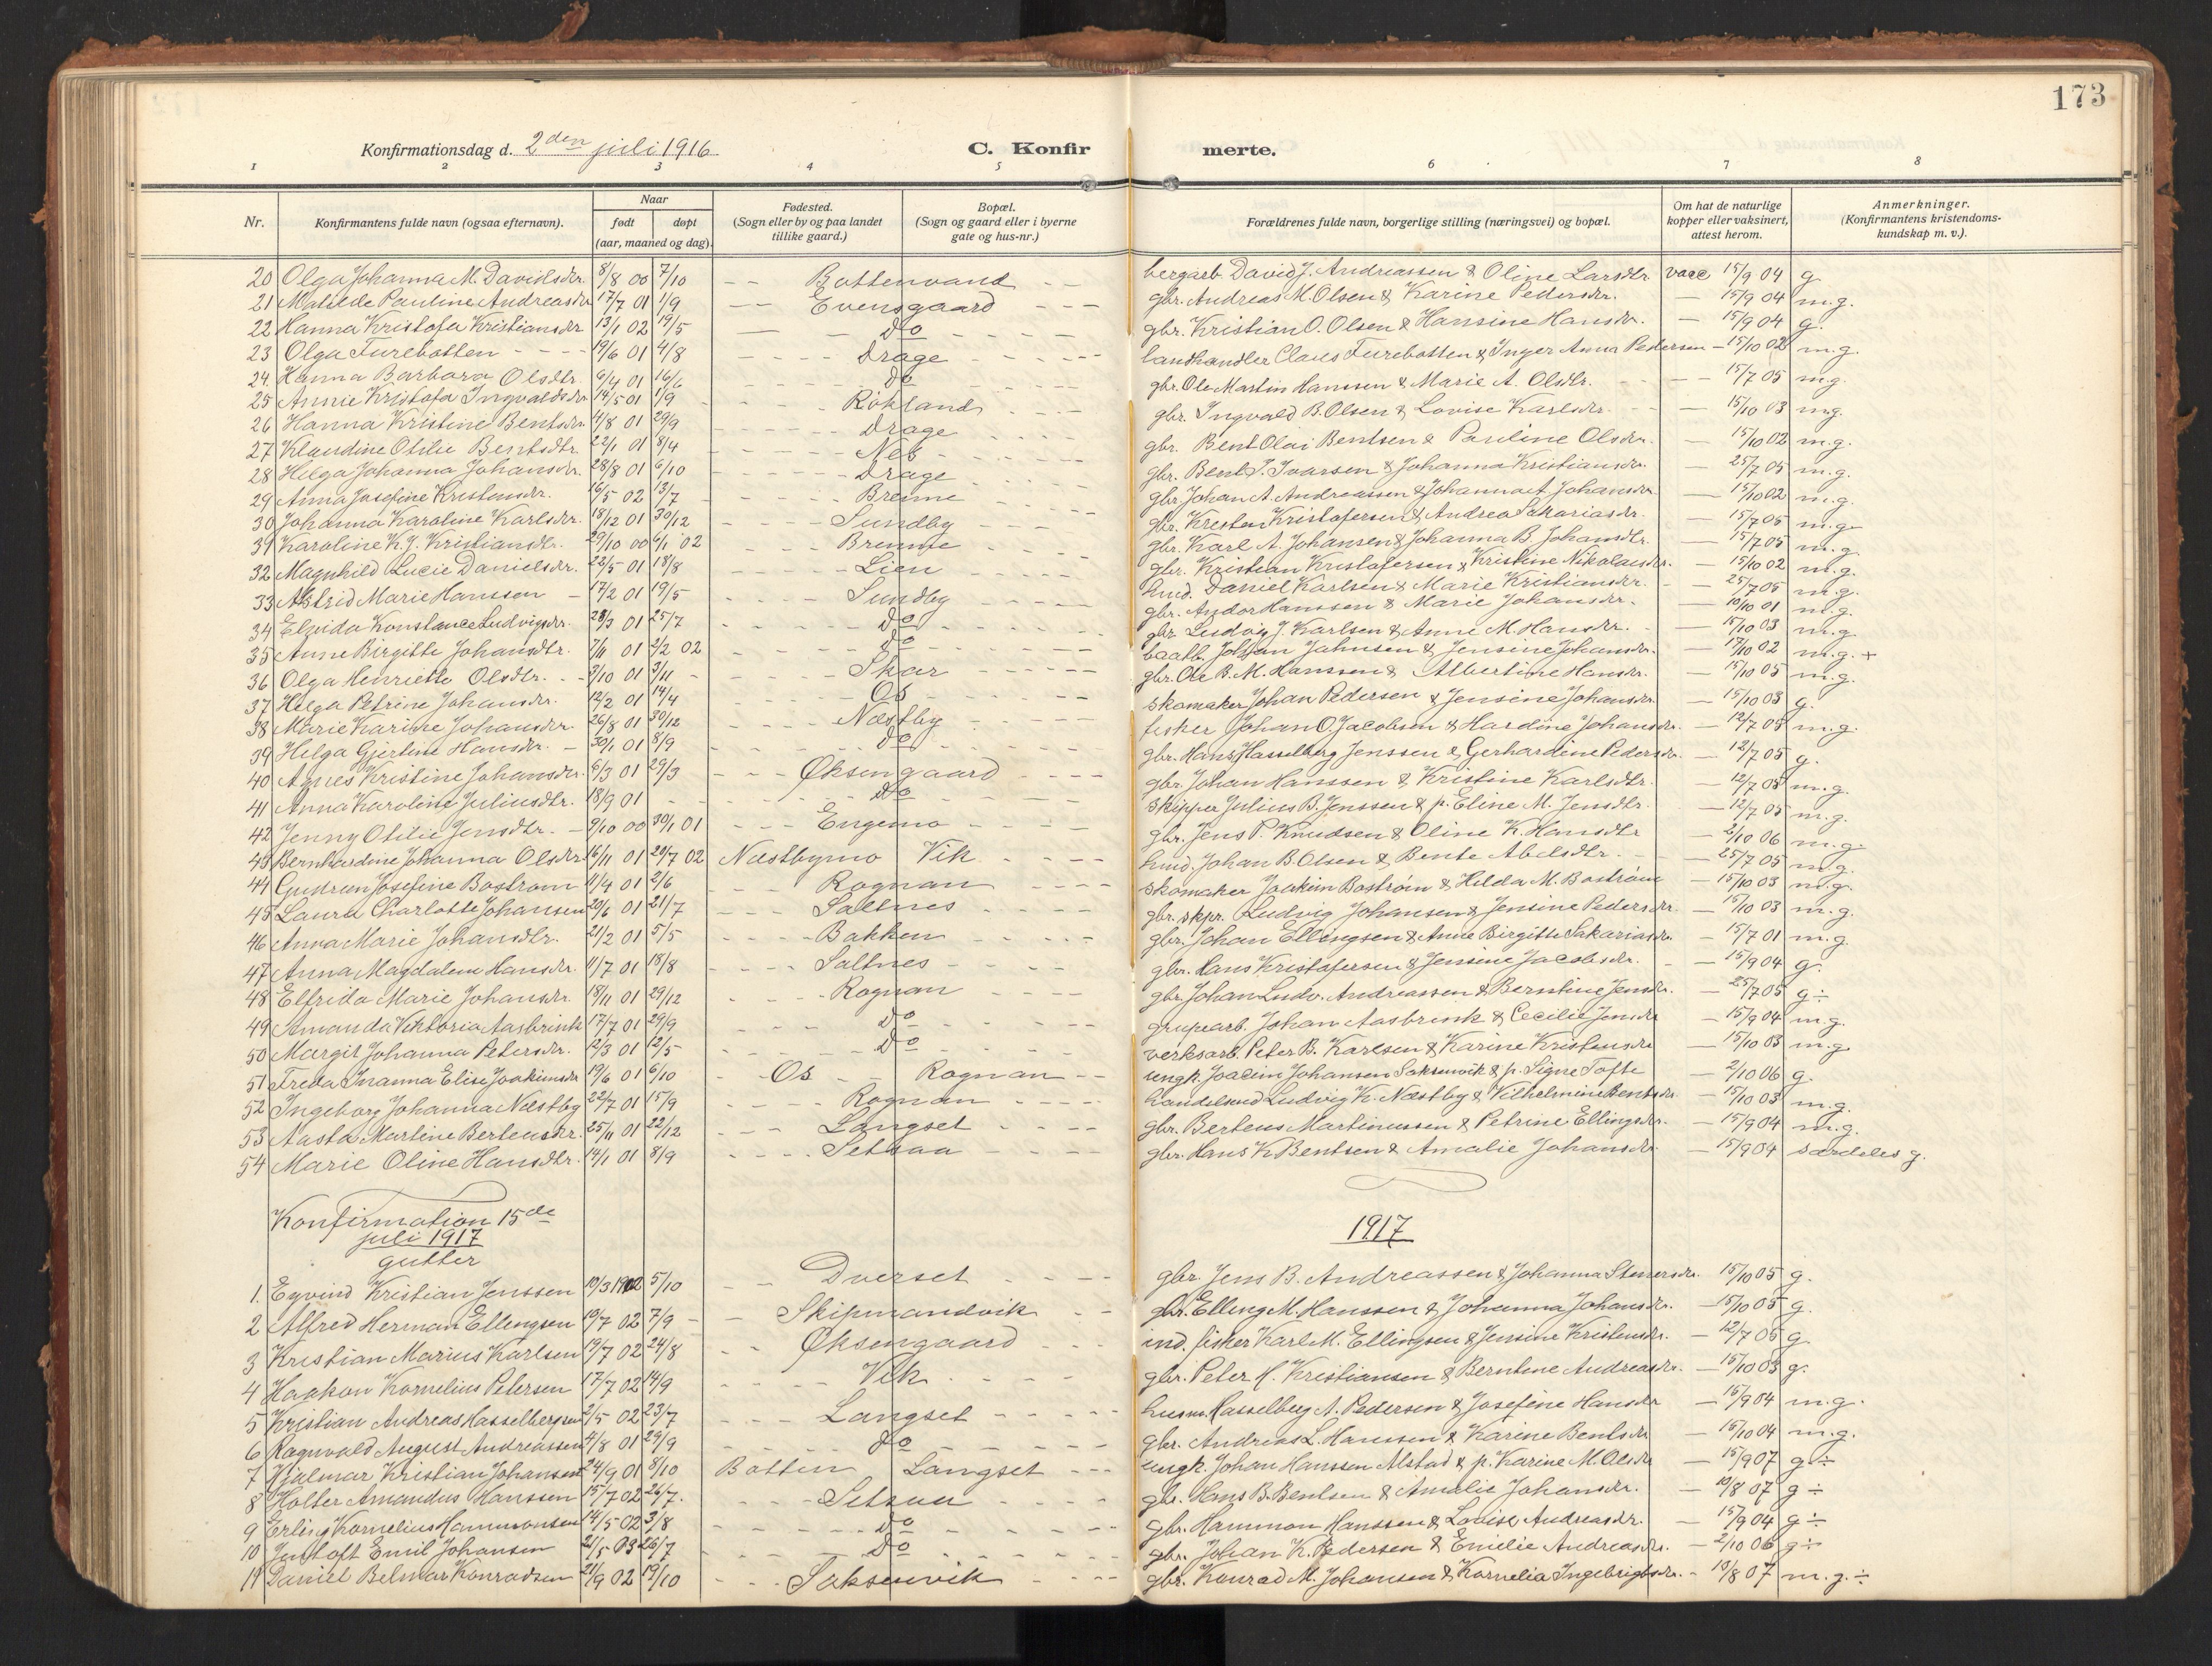 173
Konfirmationsdag d. 2den juli 1916 C. Konfirmerte.
1 2 3 4 5 6 7 8
Nr. Konfirmantens fulde navn (ogsaa efternavn). Naar født døpt (aar, maaned og dag). Fødested. (Sogn eller by og paa landet tillike gaard.) Bopæl. (Sogn og gaard eller i byerne gate og hus-nr.) Forældrenes fulde navn, borgerlige stilling (næringsvei) og bopæl. Om hat de naturlige kopper eller vaksinert, attest herom. Anmerkninger. (Konfirmantens kristendomskundskap m. v.).
20 Olga Johanna M. Davidsdtr. 8/8 00 7/10 Bottenvand bergarb. David J. Andreassen & Oline Larsdtr. vacc 15/9 04 g.
21 Mathilde Pauline Andreasdtr 17/7 01 1/9 Evensgaard gbr. Andreas M. Olsen & Karine Pedersdtr. — 15/9 04 m.g.
22 Hanna Kristofa Kristiansdtr 13/1 02 19/5 Do gbr. Kristian O. Olsen & Hansine Hansdtr. — 15/9 04 g.
23 Olga Furebotten 19/6 01 4/8 Drage landhandler Claus Furebotten & Inger Anna Pedersen — 15/10 02 m.g.
24 Hanna Barbara Olsdtr 6/4 01 16/6 Do gbr. Ole Martin Hanssen & Marie A. Olsdtr. — 15/7 05 m.g.
25 Annie Kristofa Ingvaldsdtr 14/5 01 1/9 Rökland gbr. Ingvald B. Olsen & Lovise Karlsdtr. — 15/10 03 m.g.
26 Hanna Kristine Bentsdtr 4/8 01 29/9 Drage gbr. Bent Olai Bentsen & Pauline Olsdtr. — 15/10 02 m.g.
27 Klaudine Otilie Bentsdtr. 22/1 01 8/4 Nes gbr. Bent P. Ivarsen & Johanna Kristiansdtr. — 25/7 05 m.g.
28 Helga Johanna Johansdtr. 28/8 01 6/10 Drage gbr. Johan A. Andreassen & Johanna A. Johansdtr. — 15/10 02 m.g.
29 Anna Josefine Kristensdtr. 16/5 02 13/7 Brenne gbr. Kresten Kristofersen & Andrea Sakariasdtr. — 15/7 05 m.g.
30 Johanna Karoline Karlsdtr. 18/12 01 30/12 Sundby gbr. Karl A. Johansen & Johanna B. Johansdtr. — 15/7 05 m.g.
31 Karoline K. J. Kristiansdtr. 29/10 00 6/1 02 Brenne gbr. Kristian Kristofersen & Kristine Nikolaisdtr. — 15/10 02 m.g.
32 Magnhild Lucie Danielsdtr. 22/5 01 18/8 Lien husd. Daniel Karlsen & Marie Kristiansdtr. — 25/7 05 m.g.
33 Astrid Marie Hanssen 17/2 01 19/5 Sundby gbr. Andor Hanssen & Marie Johansdtr. — 10/10 01 m.g.
34 Elvida Konstance Ludvigsdtr. 28/3 01 25/7 Do gbr. Ludvig J. Karlsen & Anne M. Hansdtr. — 15/10 03 m.g.
35 Anne Birgitte Johansdtr. 7/11 01 2/2 02 Do baatb. Johan Jahnsen & Jensine Johansdtr. — 17/10 02 m.g. +
36 Olga Henriette Olsdtr. 3/10 01 3/11 Skar gbr. Ole B. M. Hanssen & Albertine Hansdtr. — 15/10 05 m.g.
37 Helga Petrine Johansdtr. 12/2 01 14/4 Os skomaker Johan Pedersen & Jensine Johansdtr — 15/10 03 g.
38 Marie Karine Johansdtr. 26/8 01 30/12 Næstby fisker Johan O. Jacobsen & Hardine Johansdtr. — 12/7 05 m.g.
39 Helga Gjertine Hansdtr. 30/1 01 8/9 Do gbr. Hans Hasselberg Jenssen & Gerhardine Pedersdtr — 12/7 05 g.
40 Agnes Kristine Johansdtr. 6/3 01 29/3 Øksengaard gbr. Johan Hanssen & Kristine Karlsdtr. — 12/7 05 m.g.
41 Anna Karoline Juliusdtr. 18/9 01 Do skipper Julius B. Jenssen & p. Eline M. Jensdtr. — 12/7 05 m.g.
42 Jenny Otilie Jensdtr. 9/10 00 30/1 01 Engemo gbr. Jens P. Knudsen & Oline K. Hansdtr — 2/10 06 m.g.
43 Bernhardine Johanna Olsdtr 16/11 01 29/7 02 Næstbymo Vik husd. Johan B. Olsen & Bente Abelsdtr. — 25/7 05 m.g.
44 Gudrun Josefine Bostrøm 11/4 01 2/6 Rognan skomaker Joakim Bostrøm & Hilda M. Bostrøm — 15/10 03 m.g.
45 Laura Charlotte Johansen 20/6 01 21/7 Saltnes gbr. skpr. Ludvig Johansen & Jensine Pedersdtr. — 15/10 03 m.g.
46 Anna Marie Johansdtr. 21/2 01 5/5 Bakken gbr. Johan Ellingsen & Anne Birgitte Sakariasdtr. — 15/7 01 m.g.
47 Anna Magdalene Hansdtr. 11/7 01 18/8 Saltnes gbr. Hans Kristofersen & Jensine Jacobsdtr. — 15/9 04 g.
48 Elfrida Marie Johansdtr. 18/11 01 29/12 Rognan gbr. Johan Ludv. Andreassen & Berntine Jensdtr. — 25/7 05 g ÷
49 Amanda Viktoria Aasbrink 17/7 01 29/9 Do grupearb. Johan Aasbrink & Cecilie Jensdtr — 15/9 04 m.g.
50 Margit Johanna Petersdtr. 12/3 01 12/5 Do verksarb. Peter B. Karlsen & Karine Kristensdtr — 15/10 03 m.g.
51 Freda Inanna Elise Joakimsdtr 19/6 01 6/10 Os Rognan ungk. Joacim Johansen Saksenvik & p. Signe Tofte — 2/10 06 g.
52 Ingeborg Johanna Næstby 22/7 01 15/9 Rognan handelsmd Ludvig K. Næstby & Vilhelmine Bentsdtr. — 15/10 03 m.g.
53 Aasta Martine Berteusdtr. 25/11 01 22/12 Langset gbr. Berteus Martinussen & Petrine Ellingsdtr. — 15/9 04 m.g.
54 Marie Oline Hansdtr. 14/1 01 8/9 Setsaa gbr. Hans K. Bentsen & Amalie Johansdtr — 15/9 04 særdeles g.
Konfirmation 15de
juli 1917 1917
gutter
1. Eyvind Kristian Jenssen 10/3 1902 5/10 Dverset gbr. Jens B. Andreassen & Johanna Steinersdtr. 15/10 05 g.
2 Alfred Herman Ellingsen 19/7 02 7/9 Skipmandvik gbr. Elling M. Hanssen & Johanna Johansdtr. — 15/10 05 g.
3 Kristian Marius Karlsen 19/7 02 24/8 Øksengaard ind. fisker Karl M. Ellingsen & Jensine Kristensdtr. — 12/7 05 g
4 Haakon Kornelius Petersen 17/7 02 14/9 Vik gbr. Peter H. Kristiansen & Berntine Andreasdtr. — 15/10 03 g.
5 Kristian Andreas Hasselbergsen 2/5 02 23/7 Langset husm. Hasselberg A. Pedersen & Josefine Hansdtr — 15/9 04 m.g.
6 Ragnvald August Andreassen 4/8 01 29/9 Do gbr. Andreas L. Hanssen & Karine Bentsdtr — 15/10 04 m.g.
7 Hjalmar Kristian Johansen 24/9 01 8/10 Botten Langset ungk. Johan Hanssen Alstad & p. Karine M. Olsdtr — 15/9 07 g ÷
8 Holter Amandus Hanssen 15/7 02 26/7. Setsaa gbr. Hans B. Bentsen & Amalie Johansdtr. — 19/8 07 g ÷
9 Erling Kornelius Hammonsen 14/5 02 3/8 Do gbr. Hammon Hanssen & Lovise Andreasdtr. — 15/9 04 g ÷
10 Jentoft Emil Johansen 21/5 03 26/7 Do gbr. Johan K. Pedersen & Emilie Andreasdtr. — 2/10 06 g ÷
11 Daniel Belmar Konradsen 21/9 02 19/10 Saksenvik gbr. Konrad M. Johansen & Kornelia Ingebrigtsdtr. — 19/8 07 m.g. ÷